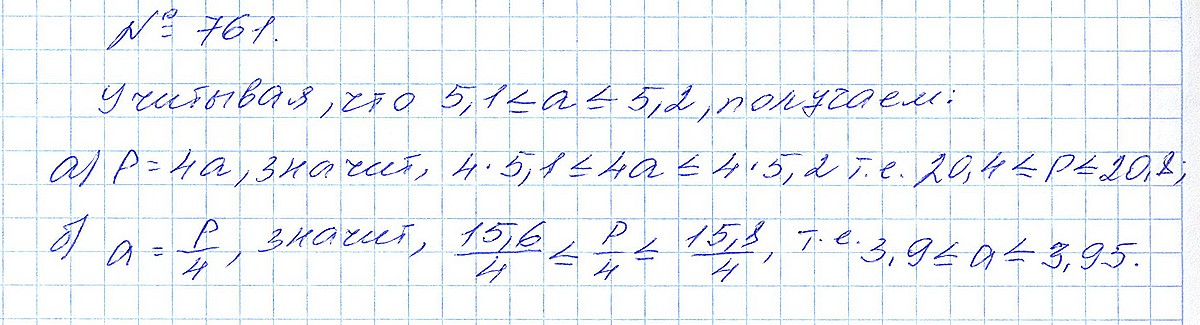 № 761.
Учитывая, что 5,1 ≤ a ≤ 5,2, получаем:
а) P = 4a, значит, 4·5,1 ≤ 4a ≤ 4·5,2 т.е. 20,4 ≤ P ≤ 20,8;
б) a = P/4, значит, 15,6/4 ≤ P/4 ≤ 15,8/4, т.е. 3,9 ≤ a ≤ 3,95.